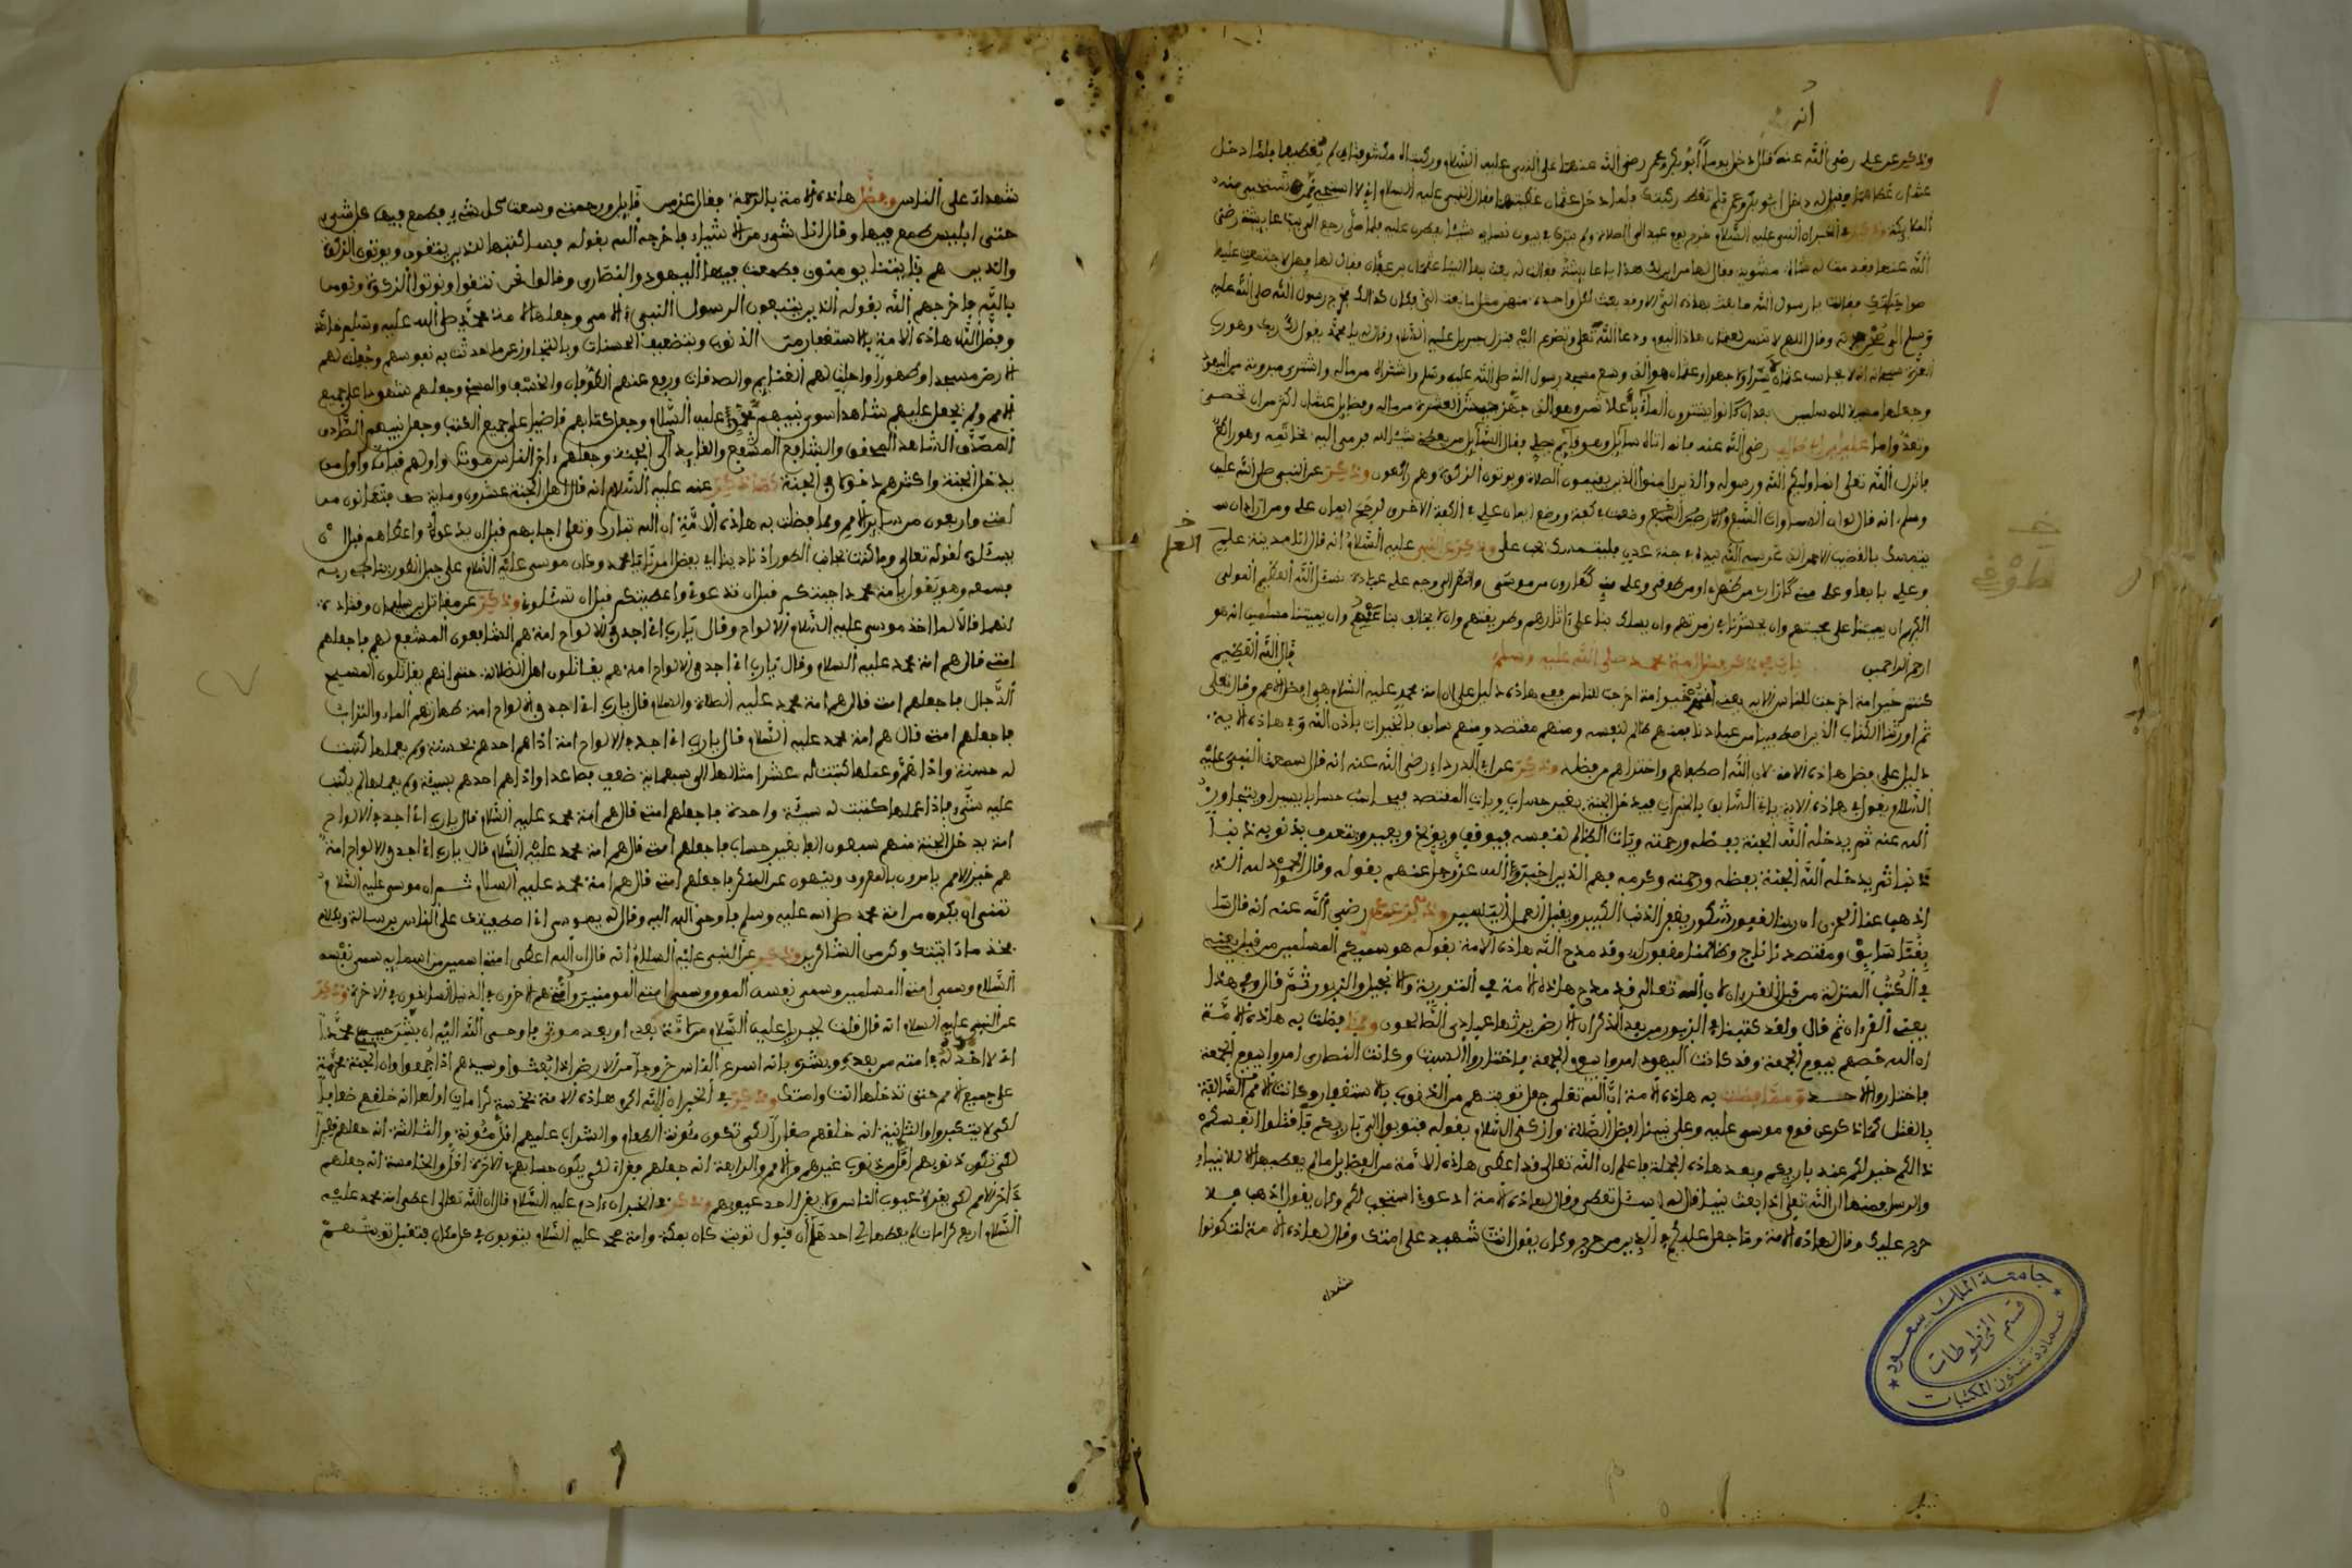 انه
وذكر عن علي رضي الله عنه قال دخل يوما أبو بكر وعمر رضي الله عنهما على النبي عليه السلام وركبتاه مكشوفتان لم يغطهما فلما دخل
عثمان غطاهما فقيل له دخل ابو بكر وعمر فلم تغط ركبتك فلما دخل عثمان غطيتهما فقال النبي عليه السلام اني لا استحيي ممن تستحيي منه
الملايكة وذكر في الخبر ان النبي عليه السلام خرج يوم عيد الى الصلاة ولم يترك في بيوت نسايه شيئا يفطرن عليه فلما صلى رجع الى بيت عايشة رضي
الله عنها فقال لها من اين لك هذا يا عايشة فقالت له بعث بها الينا عثمان بن عفان فقال لها
فقالت يا رسول الله ما بعث بهاذه الي الا وقد بعث لكل واحدة منهن مثل ما بعث الي فكان كذالك فخرج رسول الله صلى الله عليه
وسلم الى وقال اللهم لا تنس لعثمان هاذا اليوم ودعا الله تعلى وتضرع اليه فنزل جبريل عليه السلام وقال له يا محمد يقول لك ربك وهو رب
العزة سبحانه انا لا نحاسب عثمان سرا ولا جهرا وعثمان هو الذي وسع مسجد رسول الله صلى الله عليه وسلم واشتراه من ماله واشترى بير رومة من اليهود
وجعلها سبيلا للمسلمين بعد ان كانوا يشترون الماء بأغلا ثمن وهو الذي جهز جيش العسرة من ماله وفضايل عثمان اكثر من ان تحصى
وتعد واما علي بن ابي طالب رضي الله عنه فانه اتاه سايل وهو قايم يصلي فقال السايل من يعطني شيئا لله فرمى اليه بخاتمه وهو راكع
فانزل الله تعلى انما وليكم الله ورسوله والذين ءامنوا الذين يقيمون الصلاة ويوتون الزكوة وهم راكعون وذكر عن النبي صلى الله عليه
وسلم انه قال لو ان السماوات السبع والارضين السبع وضعت في كفة ووضع ايمان علي في الكفة الاخرى لرجح ايمان علي ومن اراد ان
يتمسك بالقضيب الاحمر الذي غرسه الله بيده في جنة عدن فليتمسك بحب علي وذكر عن النبي عليه السلام انه قال انا مدينة علم
العلم
وعلي بابها وعلي مني كهارون من موسى والنظر الى وجه علي عبادة نسئل الله العظيم المولى
الكريم ان يميتنا على محبتهم وان يحشرنا في زمرتهم وان يسلك بنا على ءاثارهم وطريقتهم وان لا يخالف بنا عنهم وان يميتنا مسلمين انه هو
ارحم الراحمين باب في ذكر فضل امة محمد صلى الله عليه وسلم قال الله العظيم
كنتم خير امة اخرجت للناس الاية يعني انتم خير امة اخرجت للناس ففي هاذه دليل على ان امة محمد عليه السلام هي افضل الامم وقال تعلى
ثم اورثنا الكتاب الذين اصطفينا من عبادنا فمنهم ظالم لنفسه ومنهم مقتصد ومنهم سابق بالخيرات باذن الله وفي هاذه الاية
دليل على فضل هاذه الامة لان الله اصطفاهم واختراهم من فضله وذكر عن ابي الدرداء رضي الله عنه انه قال سمعت النبي عليه
السلام يقول في هاذه الاية ياتي السابق بالخيرات فيدخل الجنة بغير حساب وياتي المقتصد فيحاسب حسابا يسيرا ويتجاوز
الله عنه ثم يدخله الله الجنة بفضله ورحمته وياتي الظالم لنفسه فيوقف ويوبخ ويعير ويتعرف بذنوبه ذنبا
ذنبا ثم يدخله الله الجنة بفضله ورحمته وكرمه فهم الذين اخبر الله عز وجل عنهم بقوله وقالوا الحمد لله الذي
اذهب عنا الحزن ان ربنا لغفور شكور يغفر الذنب الكبير ويقبل العمل اليسير وذكر عن عمر رضي الله عنه انه قال سا
بقنا سابق ومقتصدنا ناج وظالمنا مغفور له وقد مدح الله هاذه الامة بقوله هو سميكم المسلمين من قبل يعني
في الكتب المنزلة من قبل القرءان لان الله تعالى قد مدح هاذه الامة في التورية والانجيل والزبور ثم قال وفي هذا
يعني القرءان ثم قال ولقد كتبنا في الزبور من بعد الذكر ان الارض يرثها عبادي الصالحون ومما فضلت به هاذه الامة
ان الله خصهم بيوم الجمعة وقد كانت اليهود امروا بيوم الجمعة فاختاروا السبت وكانت النصارى امروا بيوم الجمعة
فاختاروا الاحد ومما فضلت به هاذه الامة ان الله تعلى جعل توبتهم من الذنوب بالاستغفار وكانت الامم السالفة
بالقتل كما ذكر عن قوم موسى عليه وعلى نبينا افضل الصلاة وازكى السلام بقوله فتوبوا الى باريكم فاقتلوا انفسكم
ذالكم خير لكم عند باريكم وبعد هاذه الجملة فاعلم ان الله تعالى قد اعطى هاذه الامة من الفضايل ما لم يعطها الا للانبياء
والرسل فمنها ان الله تعلى اذا بعث نبيا قال له سل تعطى وقال لهاذه الامة ادعوني استجب لكم وكان يقول اذهب فلا
حرج عليك وقال لهاذه الامة وما جعل عليكم في الدين من حرج وكان يقول انت شهيد على امتك وقال لهاذه الامة لتكونوا
شهداء
جامعة الملك سعود
قسم المخطوطات
عمادة شئون المكتبات
شهداء على الناس وفضل هاذه الامة بالرحمة فقال عز من قايل ورحمتي وسعت كل شيء فطمع فيها كل شيء
حتى ابليس طمع فيها وقال انا شيء من الاشياء فاخرجه الله بقوله فساكتبها للذين يتقون ويوتون الزكوة
والذين هم بئايتنا يومنون فطمعت فيها اليهود والنصارى وقالوا نحن نتقوا ونوتوا الزكوة ونومن
بالله فاخرجهم الله بقوله الذين يتبعون الرسول النبي الامي وجعلها لامة محمد صلى الله عليه وسلم خاصة
وفضل الله هاذه الامة بالاستغفار من الذنوب وبتضعيف الحسنات وبالتجاوز عن ما حدثت به نفوسهم وجعل لهم
الارض مسجدا وطهورا واحلت لهم الغنايم والصدقات ورفع عنهم الطوفان والخسف والمسخ وجعلهم شهودا على جميع
الامم ولم يجعل عليهم شاهدا سوى نبيهم محمد عليه السلام وجعل كتابهم قاضيا على جميع الكتب وجعل نبيهم الصادق
المصدق الشاهد المصدق والشافع المشفع والقايد الى الجنة وجعلهم ءاخر الناس موتا واولهم قياما واول من
يدخل الجنة واكثرهم دخولا في الجنة كما ذكر عنه عليه السلام انه قال اهل الجنة عشرون وماية صف فثمانون من
امتي واربعون من ساير الامم ومما فضلت به هاذه الامة ان الله تبارك وتعلى اجابهم قبل ان يدعوه واعطاهم قبل ان
يسئلوه لقوله تعالى وما كنت بجانب الطور اذ نادينا وكان موسى عليه السلام على جبل الطور يناجي ربه
فسمعه وهو يقول يا امة محمد اجبتكم قبل ان تدعوني واعطيتكم قبل ان تسئلوني وذكر عن مقاتل بن سليمان وقتادة
انهما قالا لما اخذ موسى عليه السلام الالواح وقال يارب اني اجد في الالواح امة هم الشافعون المشفع لهم فاجعلهم
امتي قال هم امة محمد عليه السلام وقال يارب اني اجد في الالواح امة هم يقاتلون اهل الضلالة حتى انهم يقاتلون المسيح
الدجال فاجعلهم امتي قال هم امة محمد عليه الصلاة والسلام قال يارب اني اجد في الالواح امة طهارتهم الماء والتراب
فاجعلهم امتي قال هم امة محمد عليه السلام قال يارب اني اجد في الالواح امة اذا هم احدهم بحسنة ولم يعملها كتبت
له حسنة واذا هم وعملها كتبت له عشر امثالها الى سبعماية ضعف فصاعدا واذا هم احدهم بسيئة ولم يعملها لم يكتب
عليه شيء فاذا عملها كتبت له سيئة واحدة فاجعلهم امتي قال هم امة محمد عليه السلام قال يارب اني اجد في الالواح
امة يدخل الجنة منهم سبعون الفا بغير حساب فاجعلهم امتي قال هم امة محمد عليه السلام قال يارب اني اجد في الالواح امة
هم خير الامم يامرون بالمعروف وينهون عن المنكر فاجعلهم امتي قال هم امة محمد عليه السلام ثم ان موسى عليه السلام
تمنى ان يكون من امة محمد صلى الله عليه وسلم فاوحى الله اليه وقال له يموسى اني اصطفيتك على الناس برسالتي وبكلام
فخذ ما ءاتيتك وكن من الشاكرين وذكر عن النبي عليه السلام انه قال ان الله اعطى امتي اسمين من اسمايه سمى نفسه
السلام وسمى امتي المسلمين وسمى نفسه المومن وسمى امتي المومنين وامتي هم الاخرون في الدنيا السابقون في الاخرة وذكر
عن النبي عليه السلام انه قال قلت لجبريل عليه السلام من لامتي بعدي او بعد موتي فاوحى الله اليه ان بشر حبيبي محمدا
اني لا اخذله في امته من بعدي وبشره بانه اسرع الناس خروجا من الارض اذا بعثوا وسيدهم اذا جمعوا وان الجنة محرمة
على جميع الامم حتى تدخلها انت وامتك وذكر في الخبر ان الله اكرم هاذه الامة بخمسة كرامات اولها انه خلقهم ضعافا
لكي لا يتكبروا والثانية انه خلقهم صغارا لكي تكون مئونة الطعام والشراب عليهم اقل مئونة والثالثة انه جعلهم
لكي تكون ذنوبهم اقل من ذنوب غيرهم من الامم والرابعة انه جعلهم فقراء لكي يكون حسابهم في الاخرة اقل والخامسة انه جعلهم
ءاخر الامم لكي يقروا عيوب الناس ولا يقرا احد عيوبهم وذكر في الخبر ان ءادم عليه السلام قال ان الله تعالى اعطى امة محمد عليه
السلام اربع كرامات لم يعطها لي احدها ان قبول توبتي كان بمكة وامة محمد عليه السلام يتوبون في كل مكان فتقبل توبتهم